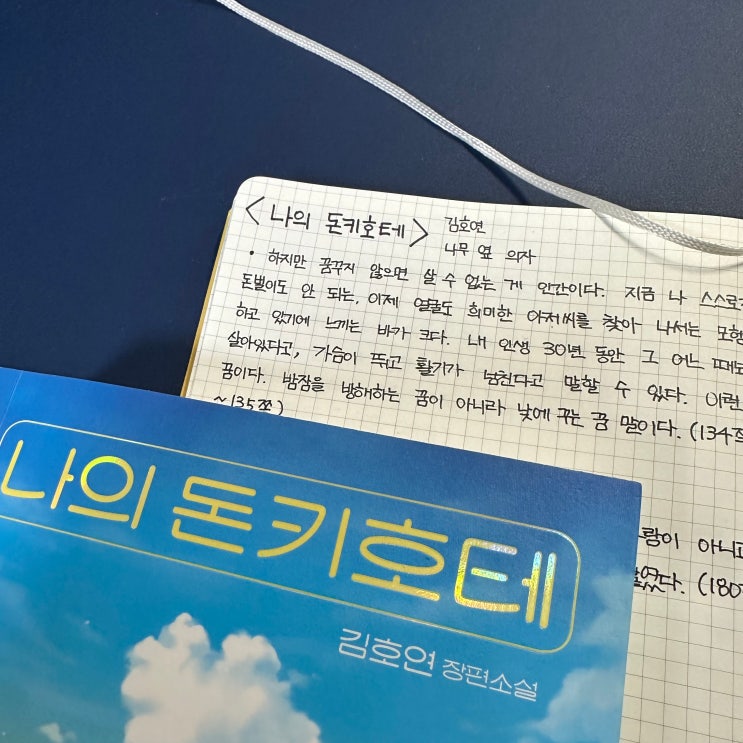 <나의 돈키호테> 김호연
나무 옆 의자
• 하지만 꿈꾸지 않으면 살 수 없는 게 인간이다. 지금 나 스스로
돈벌이도 안 되는, 이제 얼굴도 희미한 아저씨를 찾아 나서는 모험
하고 있기에 느끼는 바가 크다. 내 인생 30년 동안 그 어느 때보
살아있다고, 가슴이 뛰고 활기가 넘친다고 말할 수 있다. 이런
꿈이다. 밤잠을 방해하는 꿈이 아니라 낮에 꾸는 꿈 말이다. (134쪽
~135쪽)
아니고
(180
나의 돈키호테
김호연 장편소설